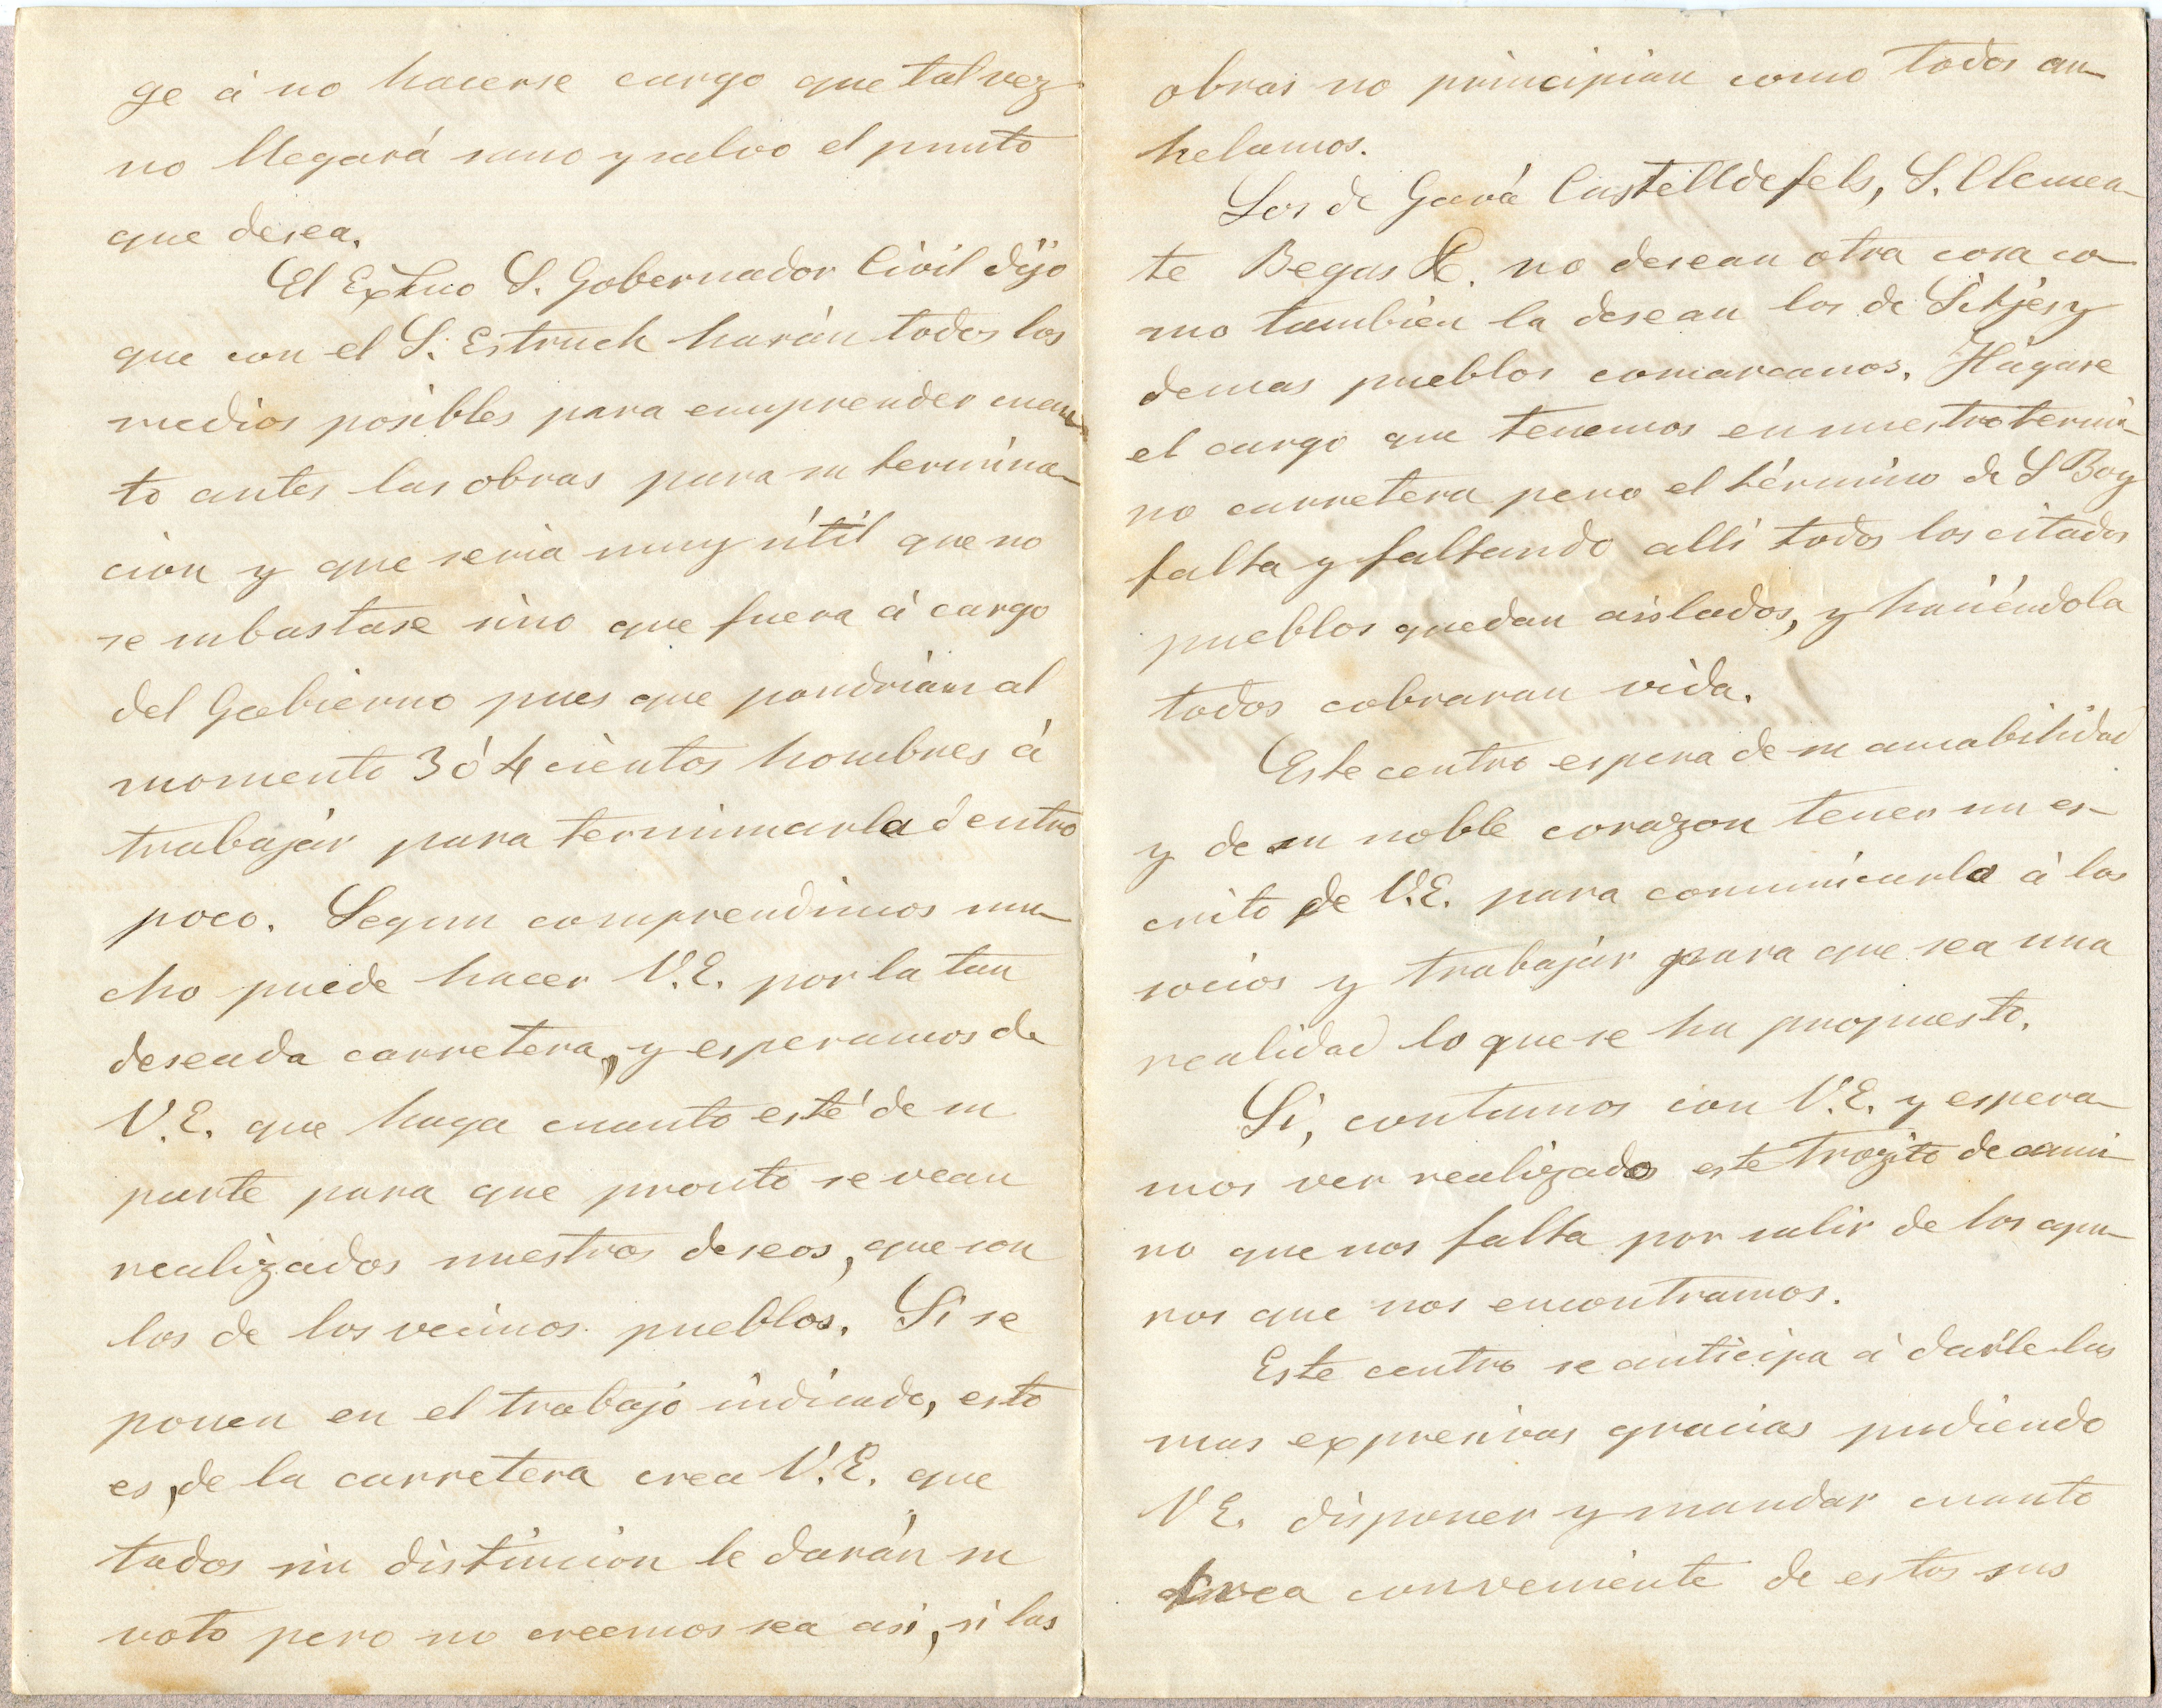 ge á no hacerse cargo que tal vez
no llegará sano y salvo el punto
que desea.
El Exmo S. Gobernador Civil dijo
que con el S. Estruch harán todos los
medios posibles para emprender cuan
to antes las obras para su termina-
cion y que seria muy útil que no
se subastase sino que fuera á cargo
del Gobierno pues que pondrian al
momento 3 ó 4 cientos hombres á
trabajar para terminarla dentro
poco. Segun comprendimos mu-
cho puede hacer V.E. por la tan
deseada carretera, y esperamos de
V.E. que haga cuanto esté de su
parte para que pronto se vean
realizados nuestros deseos, que son
los de los vecinos pueblos. Si se
ponen en el trabajo indicado, esto
es, de la carretera crea V.E. que
todos sin distincion le darán su
voto pero no creemos sea asi, si las
obras no principian como todos an-
helamos.
Los de Gavá Castelldefels, S. Clemen-
te Begas &. no desean otra cosa co-
mo tambien la desean los de Sitjes y
demas pueblos comarcanos. Hágase
el cargo que tenemos en nuestro termi-
no carretera pero el término de S Boy
falta y faltando alli todos los citados
pueblos quedan aislados, y haciéndola
todos cobraran vida.
Este centro espera de su amabilidad
y de su noble corazon tener un es-
crito de V.E. para comunicarlo á los
socios y trabajar para que sea una
realidad lo que se ha propuesto.
Si, contamos con V.E. y espera-
mos ver realizado este trozito de cami-
no que nos falta por salir de los apu-
ros que nos encontramos.
Este centro se anticipa á darle las
mas expresivas gracias pudiendo
V E. disponer y mandar cuanto
crea conveniente de estos sus